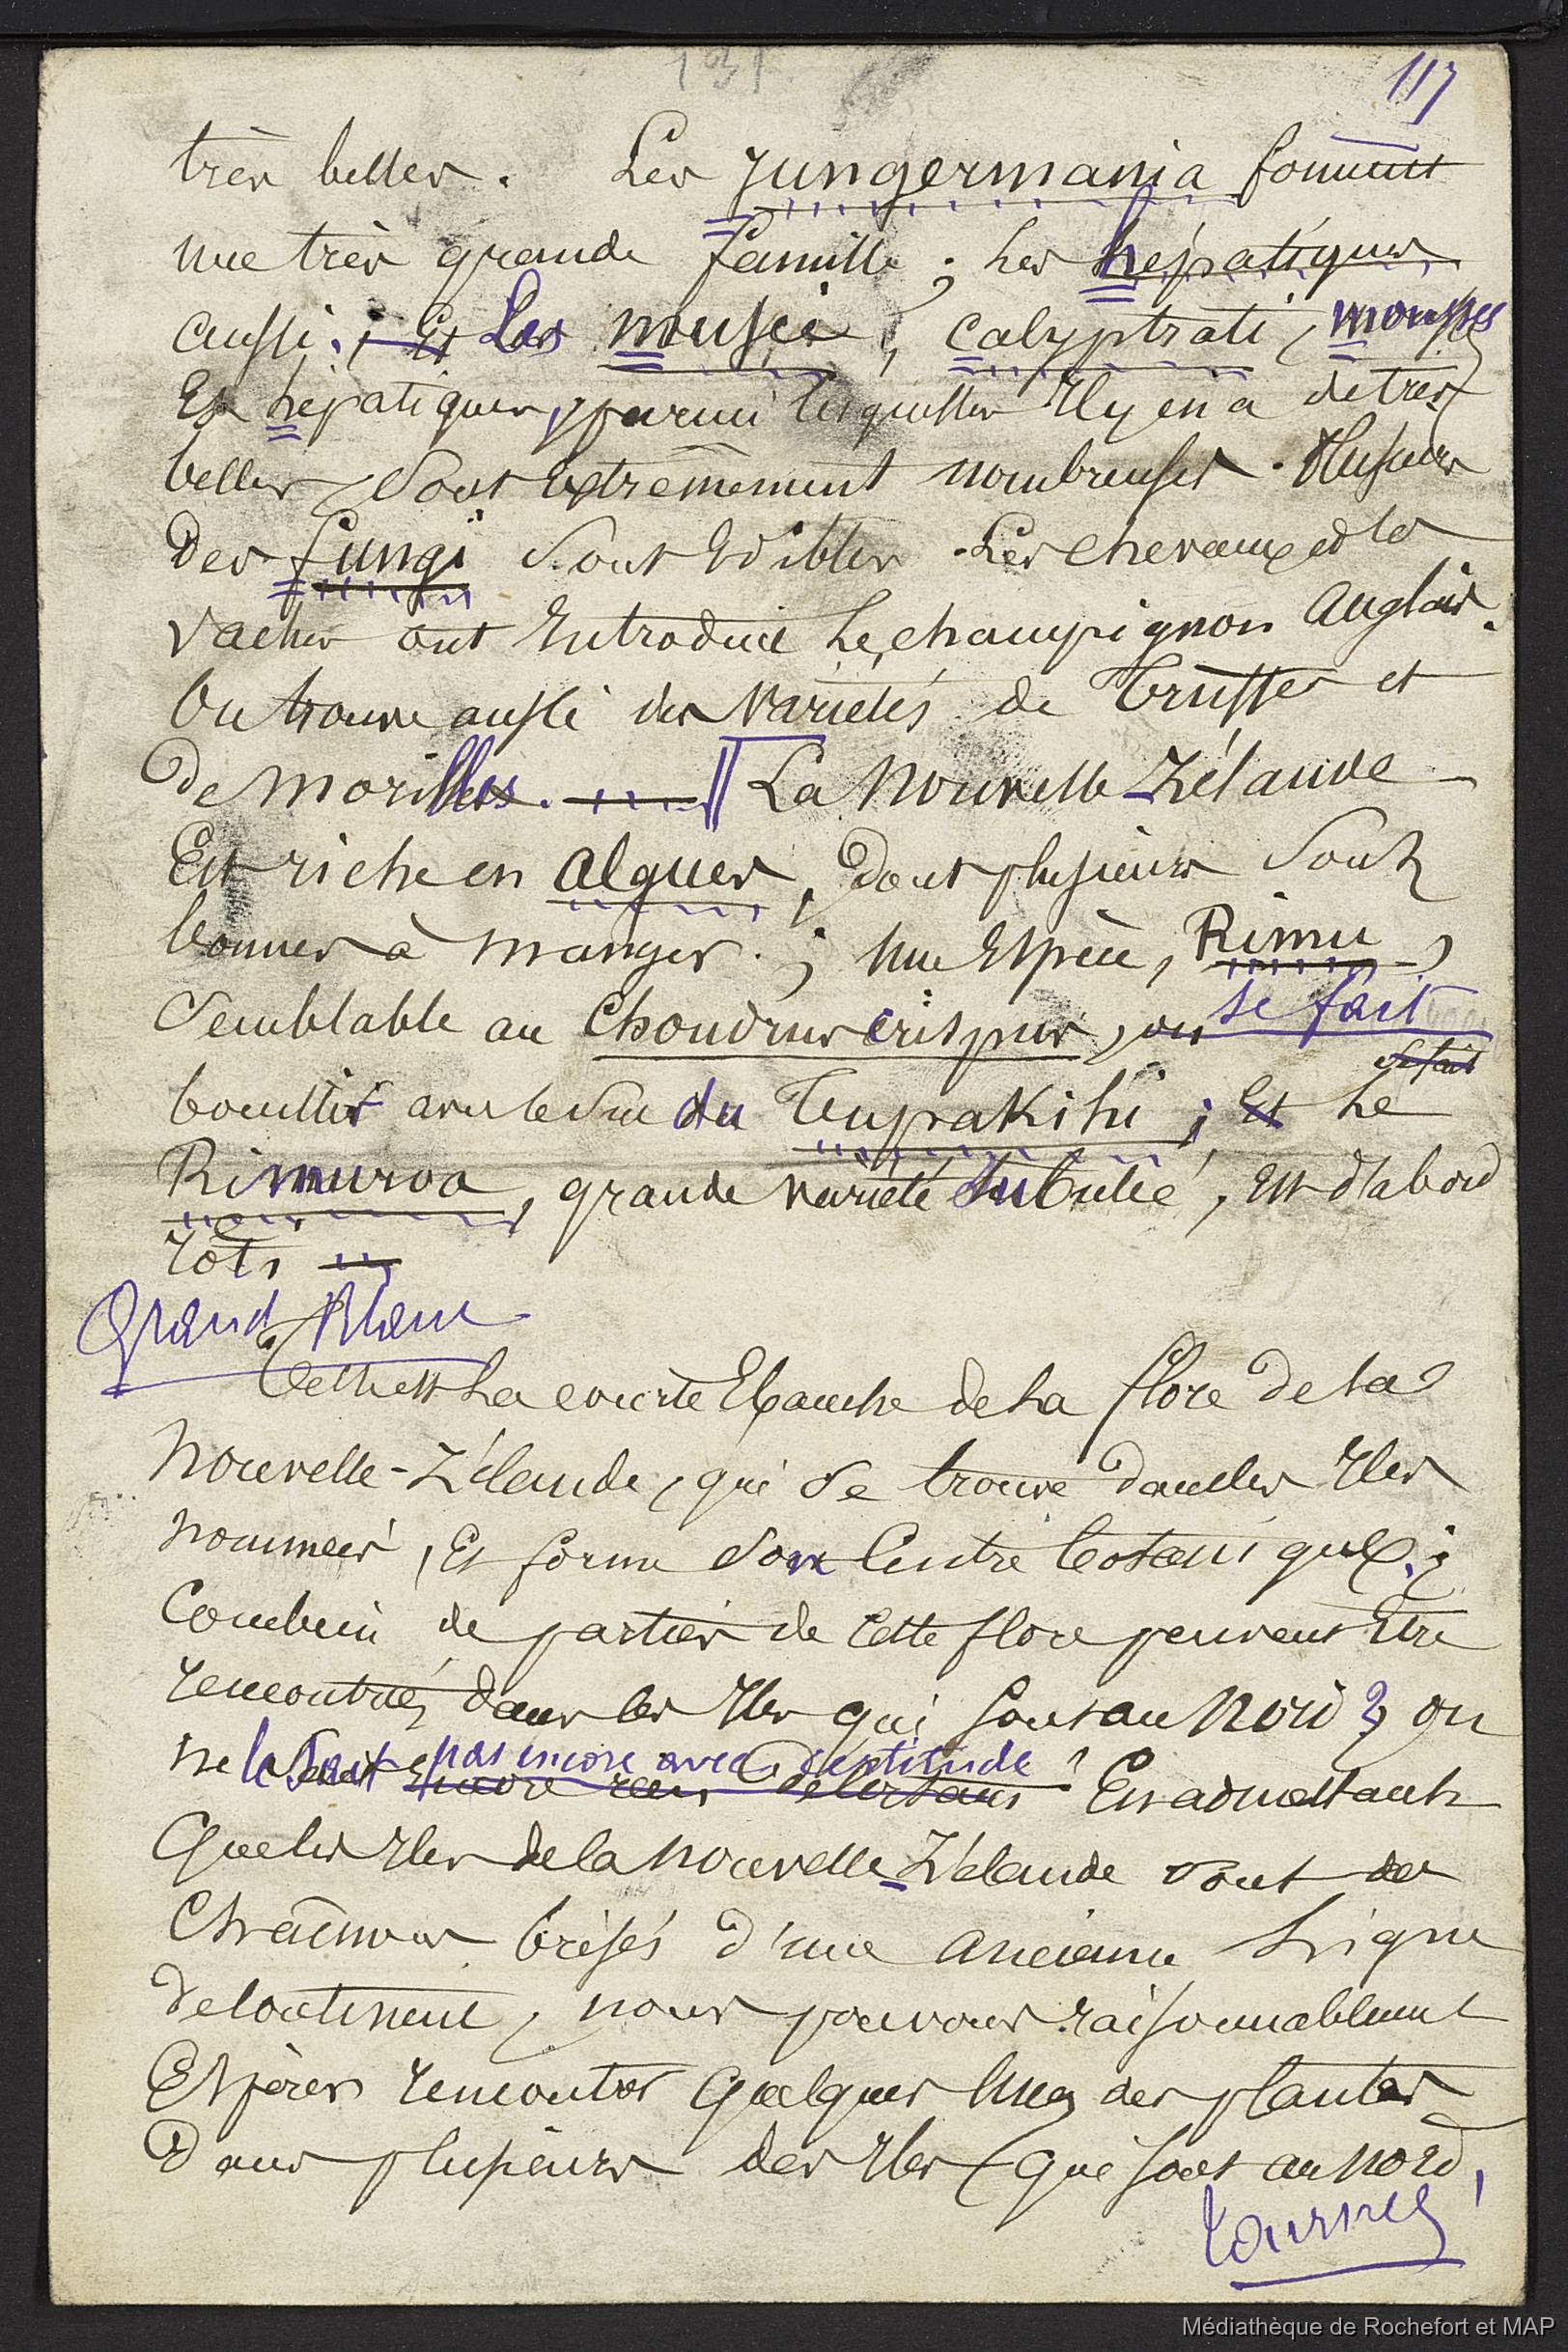 131
117
très belles. Les Jungermania forment
une très grande famille ; les hépatiques
aussi. ; Et Les musci, calyptrati, mousses
Et hépatiques, parmi lesquelles Il y en a de très
belles, sont extrêmement nombreuses. Plusieurs
Des fungi sont Edibles. Les chevaux et les
vaches ont Introduit Le champignon Anglais.
On trouve aussi des variétés de Truffes et
de morilles. La Nouvelle-Zélande
Est riche en algues, dont plusieurs sont
bonnes à manger. ; une Espèce, Rimu,
semblable au Chondrus crispus, se fait
se fait
bouillir avec le suc du Tupakihi ; Et Le
Rimuroa, grande variété, Est d'abord
rôti
Grand Blanc
Telle est La courte Ebauche de La flore de la
Nouvelle-Zélande, qui se trouve dans les Iles
nommées, Et forme son Centre botanique. ;
Combien de parties de cette flore peuvent Etre
rencontrées dans les Iles qui sont au Nord ? on
ne le sait pas encore avec certitude.
Encore rien de certain En admettant
Que les Iles de la Nouvelle-Zélande sont des
Chaînons brisés d'une ancienne Ligne
de Continent, nous pouvons raisonnablement
Espérer rencontrer Quelques Unes des plantes
Dans plusieurs des Iles qui sont au Nord,
tournez
Médiathèque de Rochefort et MAP